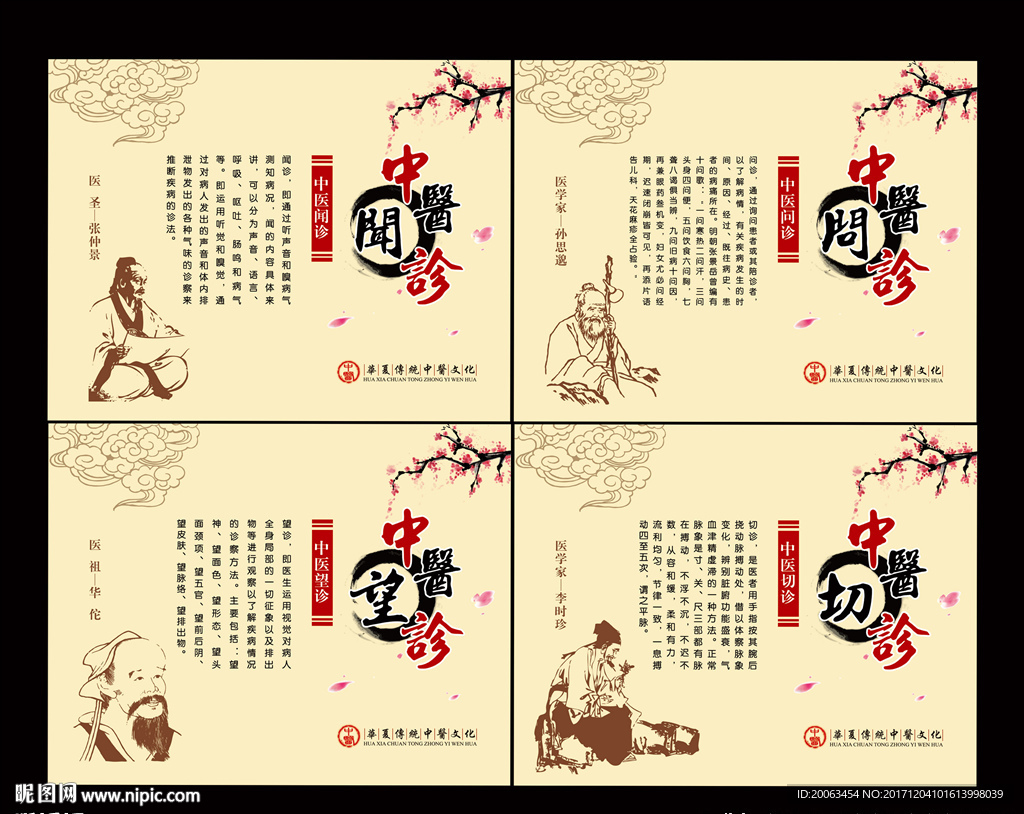 中醫聞診
中医闻诊
闻诊，即通过听声音和嗅病气
测知病况，闻的内容具体来
讲，可以分为声音、语言、
呼吸、呕吐、肠鸣和病气
等。即运用听觉和嗅觉，通
过对病人发出的声音和体内排
泄物发出的各种气味的诊察来
推断疾病的诊法。
医 圣—张仲景
華夏傳統中醫文化
HUA XIA CHUAN TONG ZHONG YI WEN HUA
中醫問診
中医问诊
问诊，通过询问患者或其陪诊者，
以了解病情，有关疾病发生的时
间、原因、经过、既往病史、患
者的病痛所在。明朝张景岳曾编有
十问歌：“一问寒热二问汗，三问
头身四问便，五问饮食六问胸，七
聋八渴俱当辨，九问旧病十问因，
再兼眼药叁机变，妇女尤必问经
期，迟速闭崩皆可见，再添片语
告儿科，天花麻疹全占验。”
医学家—孙思邈
華夏傳統中醫文化
HUA XIA CHUAN TONG ZHONG YI WEN HUA
中醫望診
中医望诊
望诊，即医生运用视觉对病人
全身局部的一切征象以及排出
物等进行观察以了解疾病情况
的诊察方法。主要包括：望
神、望面色、望形态、望头
面颈项、望五官、望前后阴、
望皮肤、望脉络、望排出物。
医 祖—华 佗
華夏傳統中醫文化
HUA XIA CHUAN TONG ZHONG YI WEN HUA
中醫切診
中医切诊
切诊，是医者用手指按其腕后
挠动脉搏动处，借以体察脉象
变化，辨别脏腑功能盛衰，气
血津精虚滞的一种方法。正常
脉象是寸、关、尺三部都有脉
在搏动，不浮不沉，不迟不
数，从容和缓，柔和有力，
流利均匀，节律一致，一息搏
动四至五次，谓之平脉。
医学家—李时珍
華夏傳統中醫文化
HUA XIA CHUAN TONG ZHONG YI WEN HUA
昵图网 www.nipic.com
ID:20063454 NO:20171204101613998039